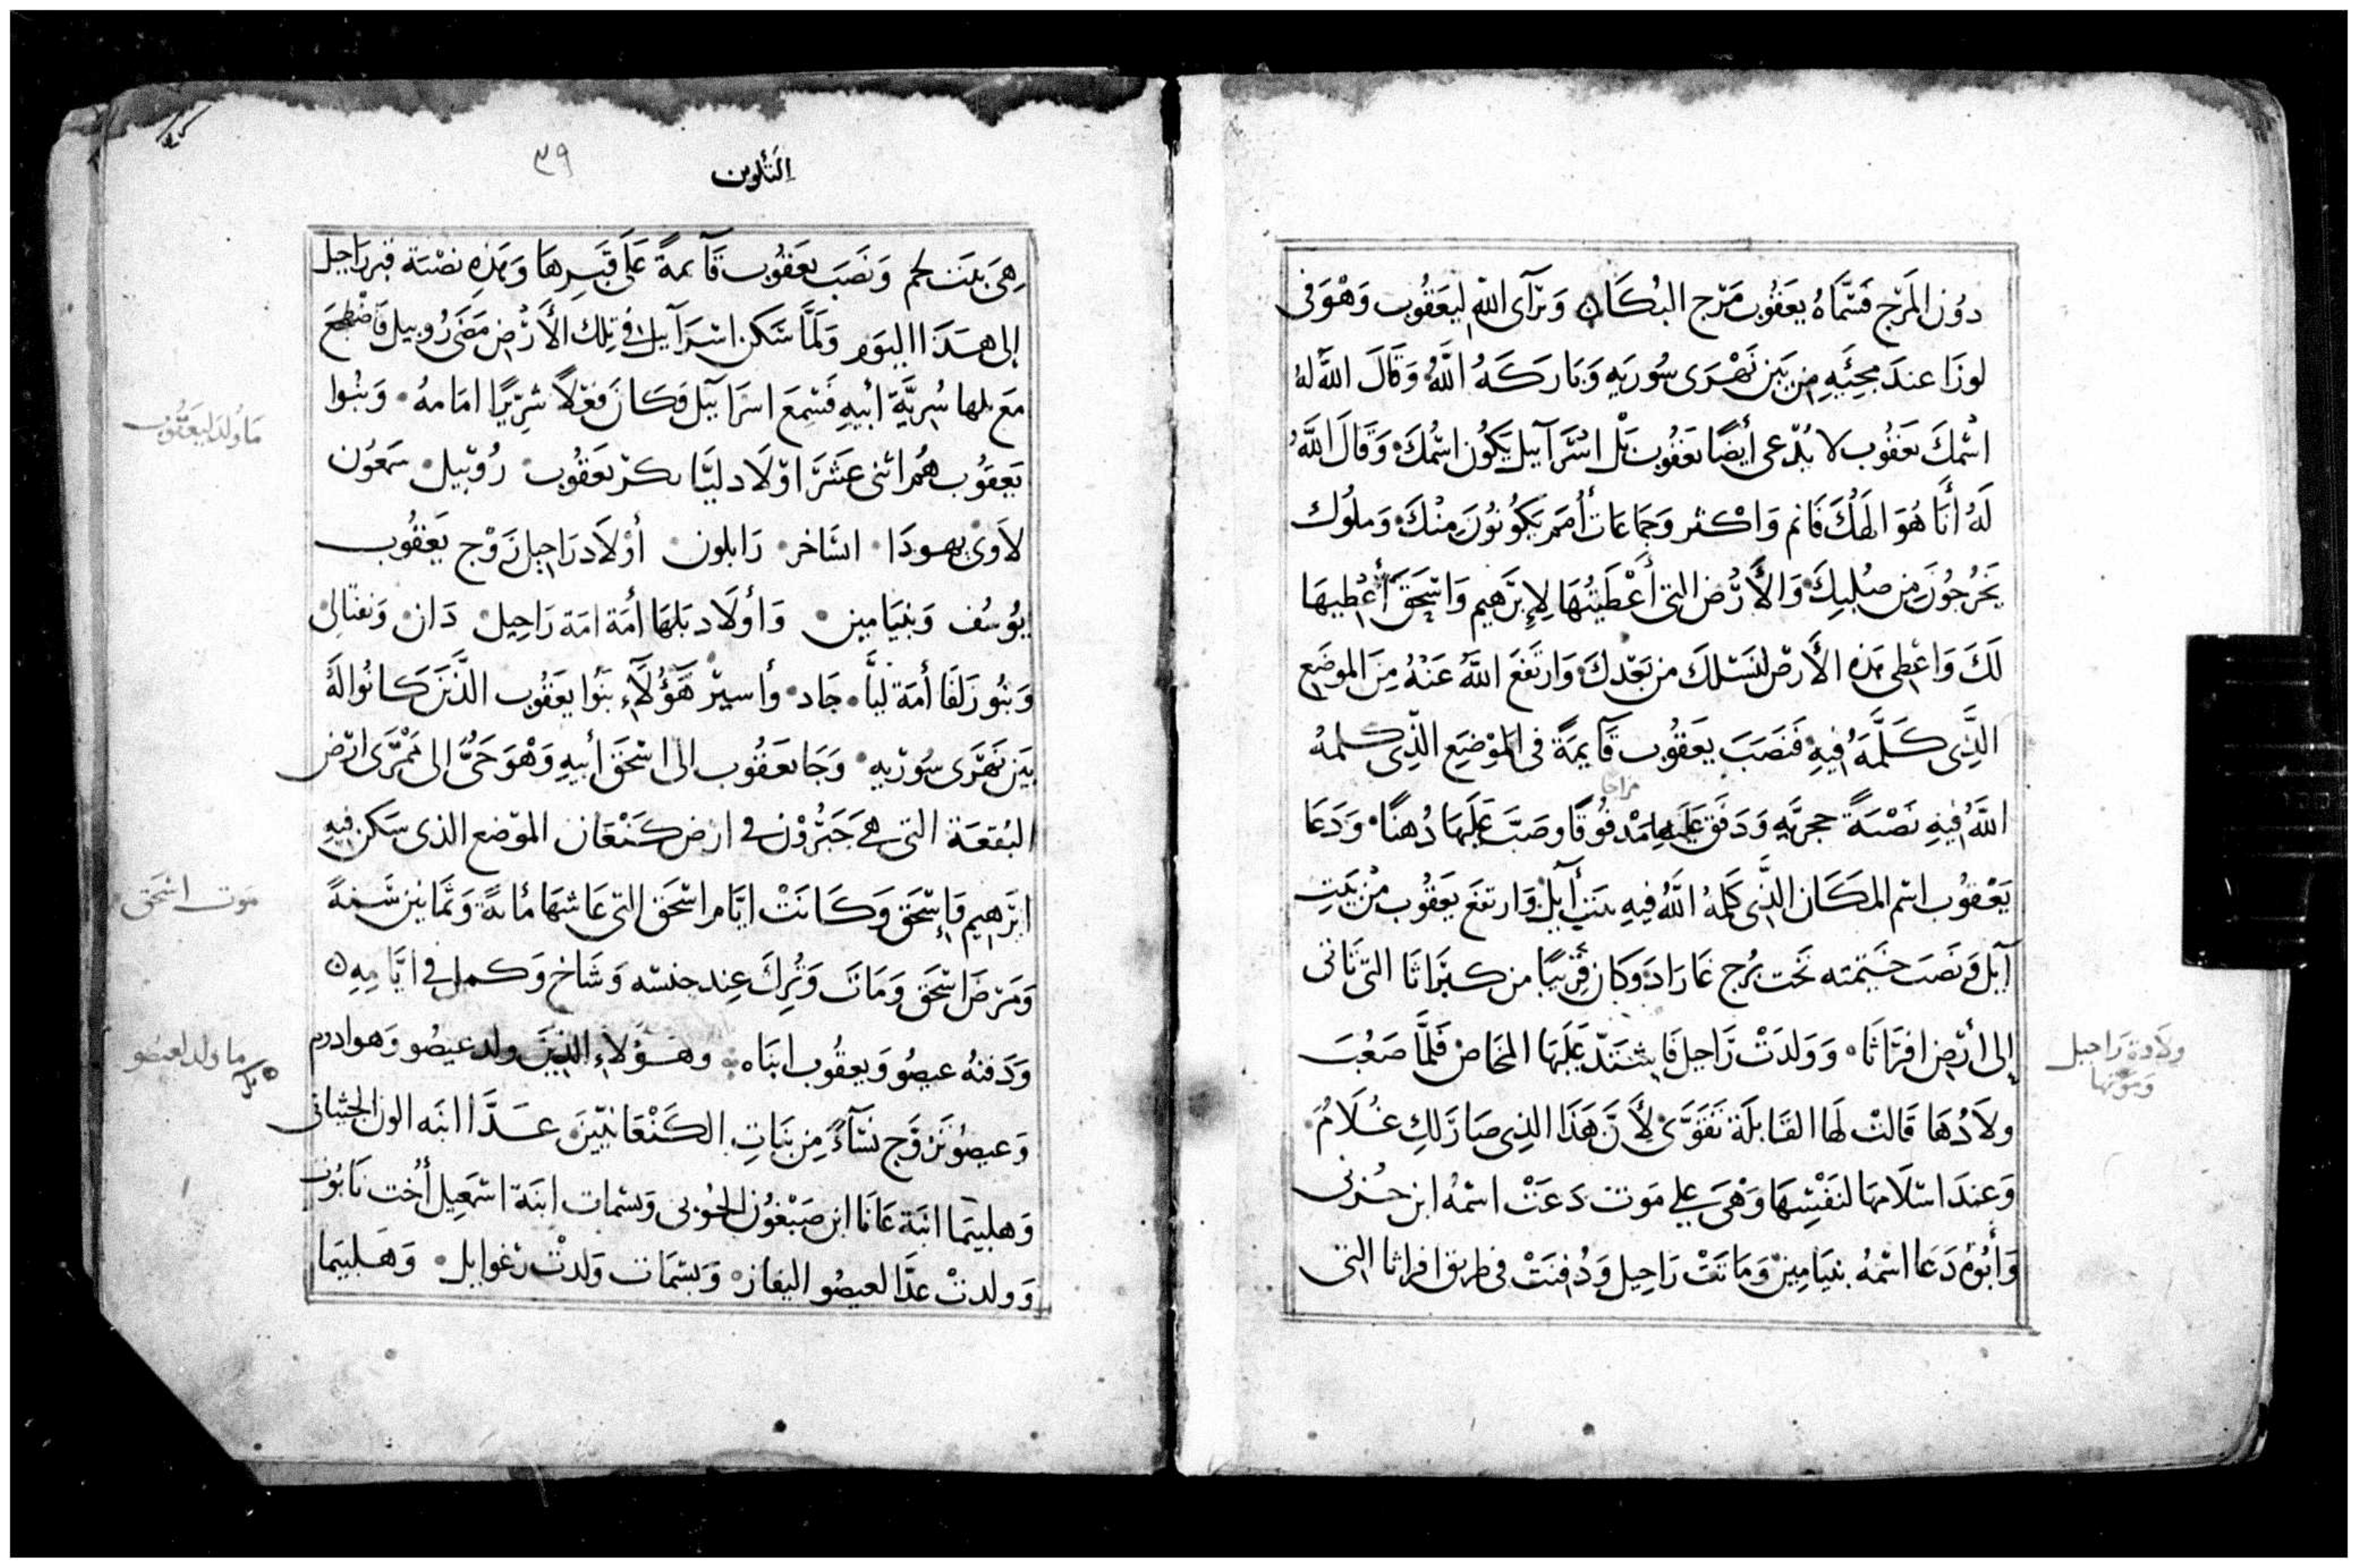 دُون المَرْج فَسَّمَاهُ يعَقُوب مَرْج البُكَان وَترَآى اللّه ليَعَقُوب وَهْوَ فى
لوزَا عندَ مجِئَيهِ مِن بَين نَهْرَى سُوريهِ وَبَارَكَهُ اللَّهُ وَقَالَ اللَّه لهُ
اسْمكَ يَعَقُوب لا يُدْعى أيضًا يَعَقُوب بَلْ اسْرَآييل يَكُون اسْمُكَ وَقَالَ اللَّهُ
لَهُ أنَا هُوَ الهُكَ فَانم وَاكْثر وَجَمَاعَات أُمَم يَكُونُونَ مِنْكَ وَملُوك
يَخرُجُونَ مِن صُلبِكَ وَالأَرْض التى أَعْطَيتُهَا لإِبرَهيم وَاسْحَقَ أُعْطِيهَا
لَكَ وَاعْطِى هَذِه الأَرض لنَسْلكَ من بَعْدكَ وَارتَفَعَ اللَّهُ عَنْهُ مِنَ الموضَع
الَّذِى كَلَّمَهُ فيهِ فَنَصَبَ يعَقُوب قَآيمَةً فى المَوْضِع الذِّى كلمهُ
مزاجا
اللَّهُ فِيهِ نَصْبَةً حجريَّهِ وَدَفَق عَلَيها مَدْفُوقًا وصَبَّ عَلَيهَا دُهنًا وَدَعَا
يَعْقوُب اسْم المَكَان الذَّى كَلمهُ اللَّه فيهِ بَيت أيل وَارتفَعَ يَعَقُوب مِن بَيتِ
آيل وَنَصَبَ خَيمته تَحت بُرج غَارَادَ وَكَان قَرْيبًا من كبرَاثَا التى تَاتى
إلى أرْض افرَاثَا وَوَلدَتْ رَاحيل فَاشتَدّ عَلَيَهَا المخَاض فَلَمَّا صَعُبَ
ولاَدُهَا قَالتْ لهَا القَابلَة تَقَوَّىْ لأَنَّ هَذَا الذِى صَارَ لَكِ غُلاَمُ
وَعندَ اسْلاَمهَا لنَفْسِهَا وَهْىَ على مَوت دَعَتْ اسْمُه ابن حُزنى
وَأبُوهُ دَعَا اسْمُهُ بنيَامِين وَمَاتَتْ رَاحِيل وَدُفنَتْ فى طريق افراثا التى
ولاَدة رَاحيل
وَمَوتها
التَكْوين
٣٩
هِىَ بَيت لحم وَنَصَبَ يعَقُوب قَآيمةً عَلَى قَبَرِهَا وَهَذِهِ نصْبَة قبر رَاحيل
إلى هَذَا اليَوَم وَلَمَّا سَّكن اسْرَآييل فى تِلك الأَرْض مَضَى رُوبيل فَاضْطجَعَ
مَعَ بلها سُريَّة أبيهِ فَسَمعَ اسرَاييل وَكَانَ فعْلاً شرِّيرًا امَامهُ وَبَنُوا
يَعَقوُب هُم اثنى عَشَرَ اوْلاَد ليَّا بكر يَعَقُوب رُوبيل سَمعُون
لاَوى يهودَا اسَاخر زَابلون أوْلاَد رَاحِيل زَوْج يَعَقُوب
يُوسُف وَبنيَامين وَأولَاد بَلهَا أمَة امَة رَاحِيل دَان وَنفتَالى
وَبنُو زَلفَا أمَة ليَّا جَاد وأسير هَؤُلآءِ بَنُوا يعَقُوب الذَّينَ كَانُوا لَهُ
بَين نَهَرَى سُورْيهِ وَجَا يعَقُوب الى اسْحَق أبيهِ وَهْوَ حَىّ الى مَمْرَى ارْض
البُقعَة التى هى حَبْرُوْن فى ارض كَنْعَان الموَضع الذى سَكن فيهِ
ابرَهِيم وَإسْحَق وَكَانَتْ ايَّام اسْحَق التى عَاشهَا مُايةً وَثَمَانين سَنةً
وَمَرَضَ اسْحَق وَمَاتَ وَتُرِكَ عِند جنسْه وَشَاخ وَكمل فى ايَّامِهِ
وَدَفنهُ عيصُو وَيعقُوب ابنَاه وهؤُلاَءِ الذينَ ولد عيصُو وَهو ادوم
وَعيصُو تزوَّج نسَآءً مِن بَنَاتِ الكَنْعَانيّينَ عَدَّا ابنَه الون الحِثيانى
وَهلبيمَا ابنَة عَانَا ابن صَبْغون الحُوىى وَبسْمات ابنَة اسْمَعِيل أُخت نَابُوت
وَولدتْ عدَّا لعيصُو اليفاز وَبسْمَات وَلدتْ رَغوايل وَهَلبيَما
مَا وُلدَ ليَعَقُوب
مَوت اسْحَق
مَا ولد لعيصُو